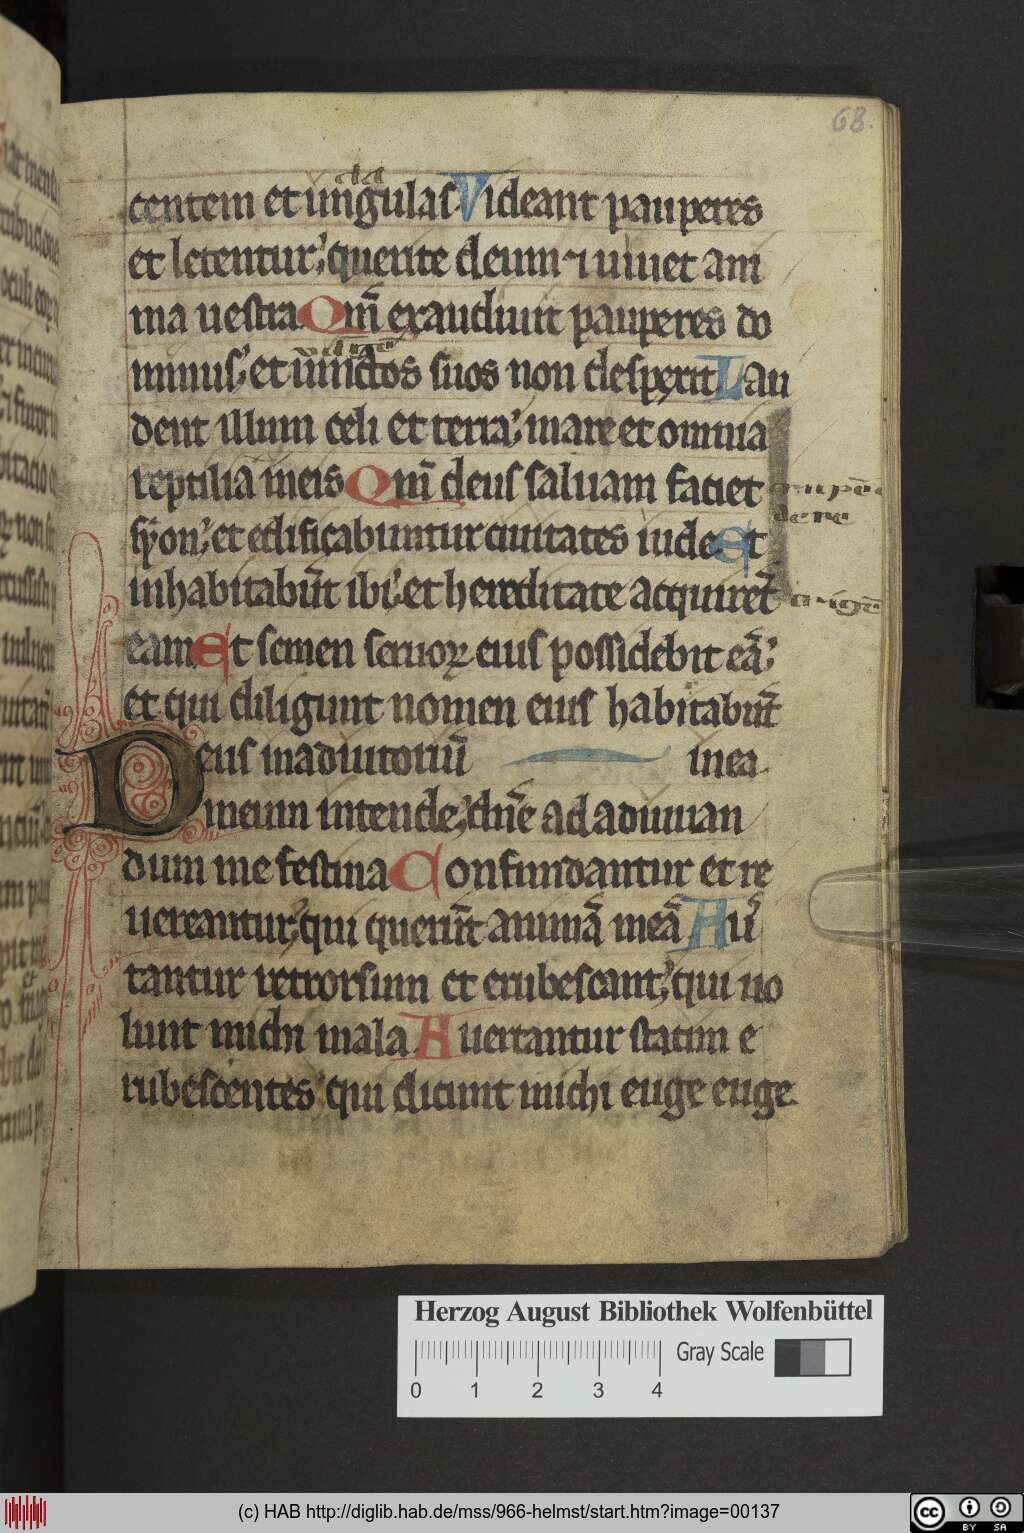 68.
centem et ungulas Videant pauperes
et letentur, querite deum ⁊ uiuet ani
ma uestra Qm̄ exaudiuit pauperes do
minus, et uinctos suos non despexit Lau
dent illum celi et terra, mare et omnia
reptilia in eis Qm̄ deus saluam faciet
syon, et edificabuntur ciuitates iude Et
inhabitabūt ibi, et hereditate acquirēt
eam Et semen seruoꝝ eius possidebit eā,
et qui diligunt nomen eius habitabūt
Deus in adiutoriū in ea
meum intende, dn̄e ad adiuuan
dum me festina Confundantur et re
uereantur, qui querūt animā meā Auͬ
tantur retrorsum et erubescant, qui uo
lunt michi mala Auertantur statim e
rubescentes qui dicunt michi euge euge
Herzog August Bibliothek Wolfenbüttel
Gray Scale
0 1 2 3 4
(c) HAB http://diglib.hab.de/mss/966-helmst/start.htm?image=00137
cc BY SA